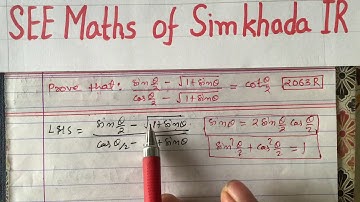 SEE Maths of Simkhada IR
Prove that: (sin θ/2 − √(1+sinθ)) / (cos θ/2 − √(1+sinθ)) = cot θ/2 [2063R]
LHS = (sin θ/2 − √(1+sinθ)) / (cos θ/2 − 1+sinθ)
sinθ = 2 sin θ/2 cos θ/2
sin² θ/2 + cos² θ/2 = 1